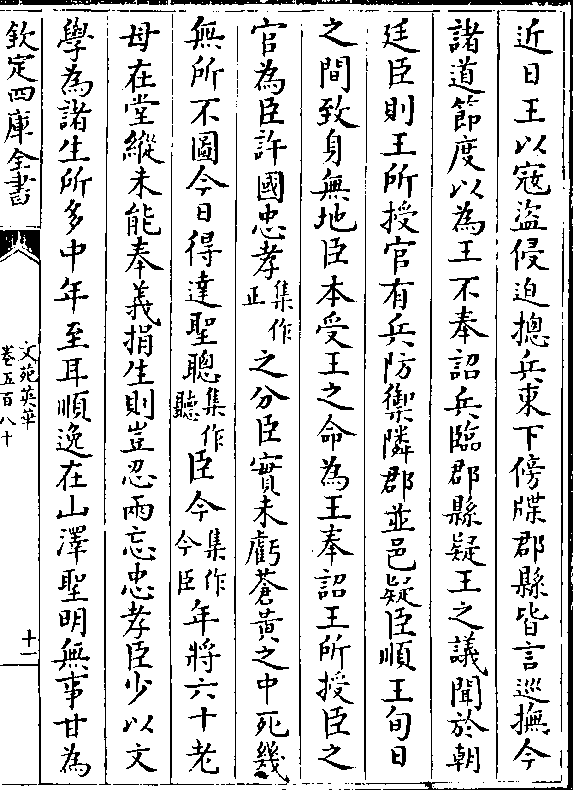 近日王以寇盜侵迫摠兵東下傍牒郡縣皆言巡撫今
諸道節度以為王不奉詔兵臨郡縣疑王之議聞於朝
廷臣則王所授官有兵防禦隣郡並邑疑臣順王旬日
之間致身無地臣本受王之命為王奉詔王所授臣之
官為臣許國忠孝集作正之分臣實未虧蒼黄之中死幾
無所不圖今日得達聖聰集作聽臣今集作今臣年將六十老
母在堂縱未能奉義捐生則豈忍兩忘忠孝臣少以文
學為諸生所多中年至耳順逸在山澤聖明無事甘為
欽定四庫全書
文苑英華
卷五百八十
十一